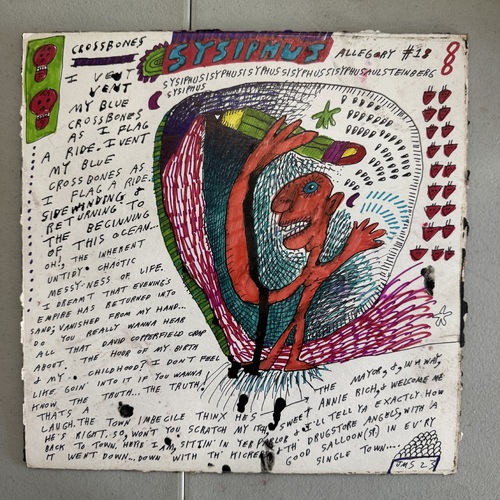 CROSSBONES
SYSIPHUS
ALLEGORY #18
SYSIPHUSISYPHUSISYPHUSSISYPHUSSISYPHUSAULSTEINBERG
SYSIPHUS
8
8
I VENT
VENT
MY BLUE
CROSSBONES
AS I FLAG
A RIDE. I VENT
MY BLUE
CROSSBONES AS
I FLAG A RIDE..
SIDEWINDING &
RETURNING TO
THE BEGINNING
OF THIS OCEAN...
OH!, THE INHERENT
UNTIDY CHAOTIC
MESSY-NESS OF LIFE.
I DREAMT THAT EVENINGS
EMPIRE HAS RETURNED INTO
SAND, VANISHED FROM MY HAND...
DO YOU REALLY WANNA HEAR
ALL THAT DAVID COPPERFIELD CRAP
ABOUT. THE HOUR OF MY BIRTH
& MY CHILDHOOD? I DON'T FEEL
LIKE GOIN' INTO IT IF YOU WANNA
KNOW THE TRUTH... THE TRUTH?
THAT'S A
LAUGH. THE TOWN IMBECILE THINX HES
HE'S RIGHT. SO, WON'T YOU SCRATCH MY ITCH, SWEET ANNIE RICH, & WELCOME ME
BACK TO TOWN, HERE I AM, SITTIN' IN YER PARLOR I'LL TELL YA EXACTLY HOW
IT WENT DOWN... DOWN WITH TH' KICKERS & TH' DRUGSTORE ANGELS, WITH A
THE MAYOR, &,
GOOD SALLOON(ST) IN EV'RY
SINGLE TOWN....
JMS 23